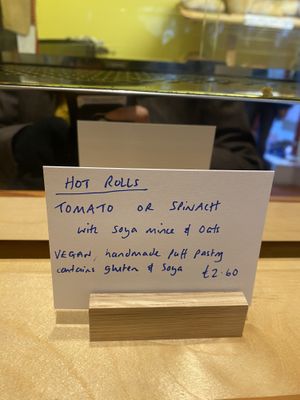 HOT ROLLS
TOMATO OR SPINACH
with soya mince & oats
VEGAN, handmade puff pastry
contains gluten & soya £2.60